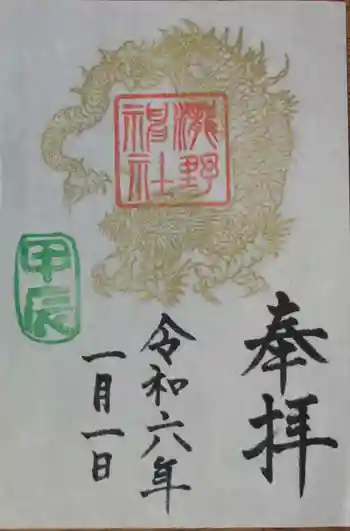 奉拝
瀧野
神社
令和六年
一月一日
甲辰